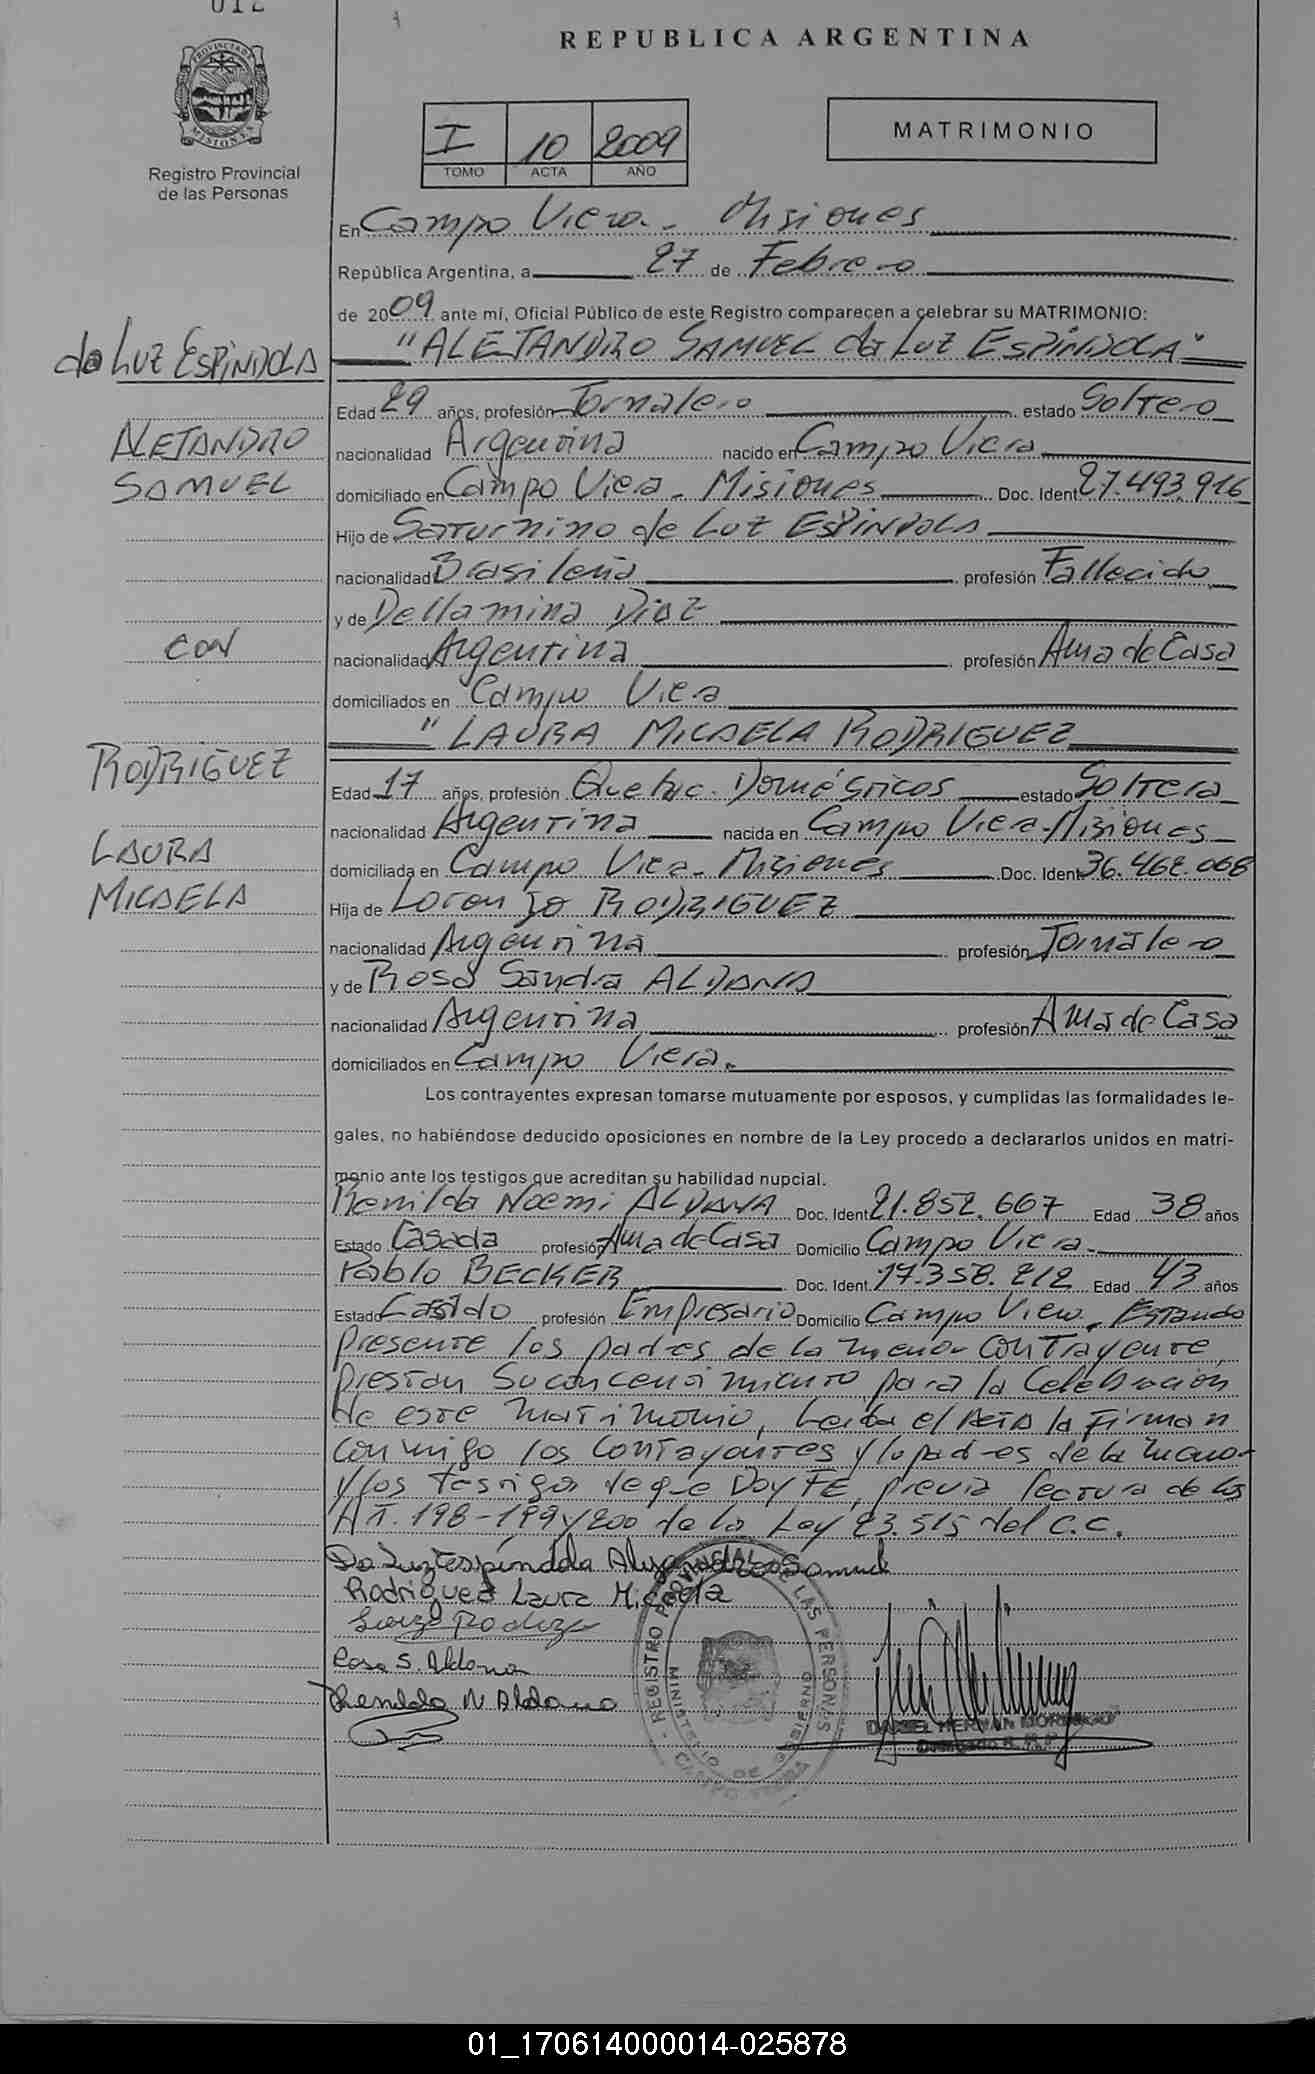 012
REPUBLICA ARGENTINA
PROVINCIA DE MISIONES
Registro Provincial
de las Personas
I 10 2009
TOMO ACTA AÑO
MATRIMONIO
En Campo Viera - Misiones
República Argentina, a 27 de Febrero
de 2009 ante mí, Oficial Público de este Registro comparecen a celebrar su MATRIMONIO:
"ALEJANDRO SAMUEL da LUZ ESPINDOLA"
da LUZ ESPINDOLA
ALEJANDRO
SAMUEL
CON
RODRIGUEZ
LAURA
MICAELA
Edad 29 años, profesión Jornalero estado Soltero
nacionalidad Argentina nacido en Campo Viera
domiciliado en Campo Viera - Misiones Doc. Ident 27.493.916
Hijo de Saturnino de LUZ ESPINDOLA
nacionalidad Brasileña profesión Fallecido
y de Dellamina Diaz
nacionalidad Argentina profesión Ama de Casa
domiciliados en Campo Viera
"LAURA MICAELA RODRIGUEZ
Edad 17 años, profesión Quehac. Domésticos estado Soltera
nacionalidad Argentina nacida en Campo Viera - Misiones
domiciliada en Campo Viera - Misiones Doc. Ident 36.462.068
Hija de Lorenzo RODRIGUEZ
nacionalidad Argentina profesión Jornalero
y de Rosa Sandra ALDANA
nacionalidad Argentina profesión Ama de Casa
domiciliados en Campo Viera.
Los contrayentes expresan tomarse mutuamente por esposos, y cumplidas las formalidades le-
gales, no habiéndose deducido oposiciones en nombre de la Ley procedo a declararlos unidos en matri-
monio ante los testigos que acreditan su habilidad nupcial.
Renilda Noemi ALDANA Doc. Ident 21.852.667 Edad 38 años
Estado Casada profesión Ama de Casa Domicilio Campo Viera.
Pablo BECKER Doc. Ident. 17.358.212 Edad 43 años
Estado Casado profesión Empresario Domicilio Campo Viera. Estando
presente los padres de la menor contrayente,
prestan su concentimiento para la celebración
de este matrimonio, Leída el Acta la Firman
conmigo los contrayentes y lo padres de la menor
y los testigos de que Doy FE, previa lectura de los
ART. 198-199 y 200 de la Ley 23.515 del C.C.
Da Luz Espíndola Alejandro Samuel
Rodriguez Laura Micaela
Rosa S. Aldana
Renilda N Aldana
REGISTRO PROVINCIAL DE LAS PERSONAS
MINISTERIO DE GOBIERNO
CAMPO VIERA
DANIEL HERNAN
01_170614000014-025878